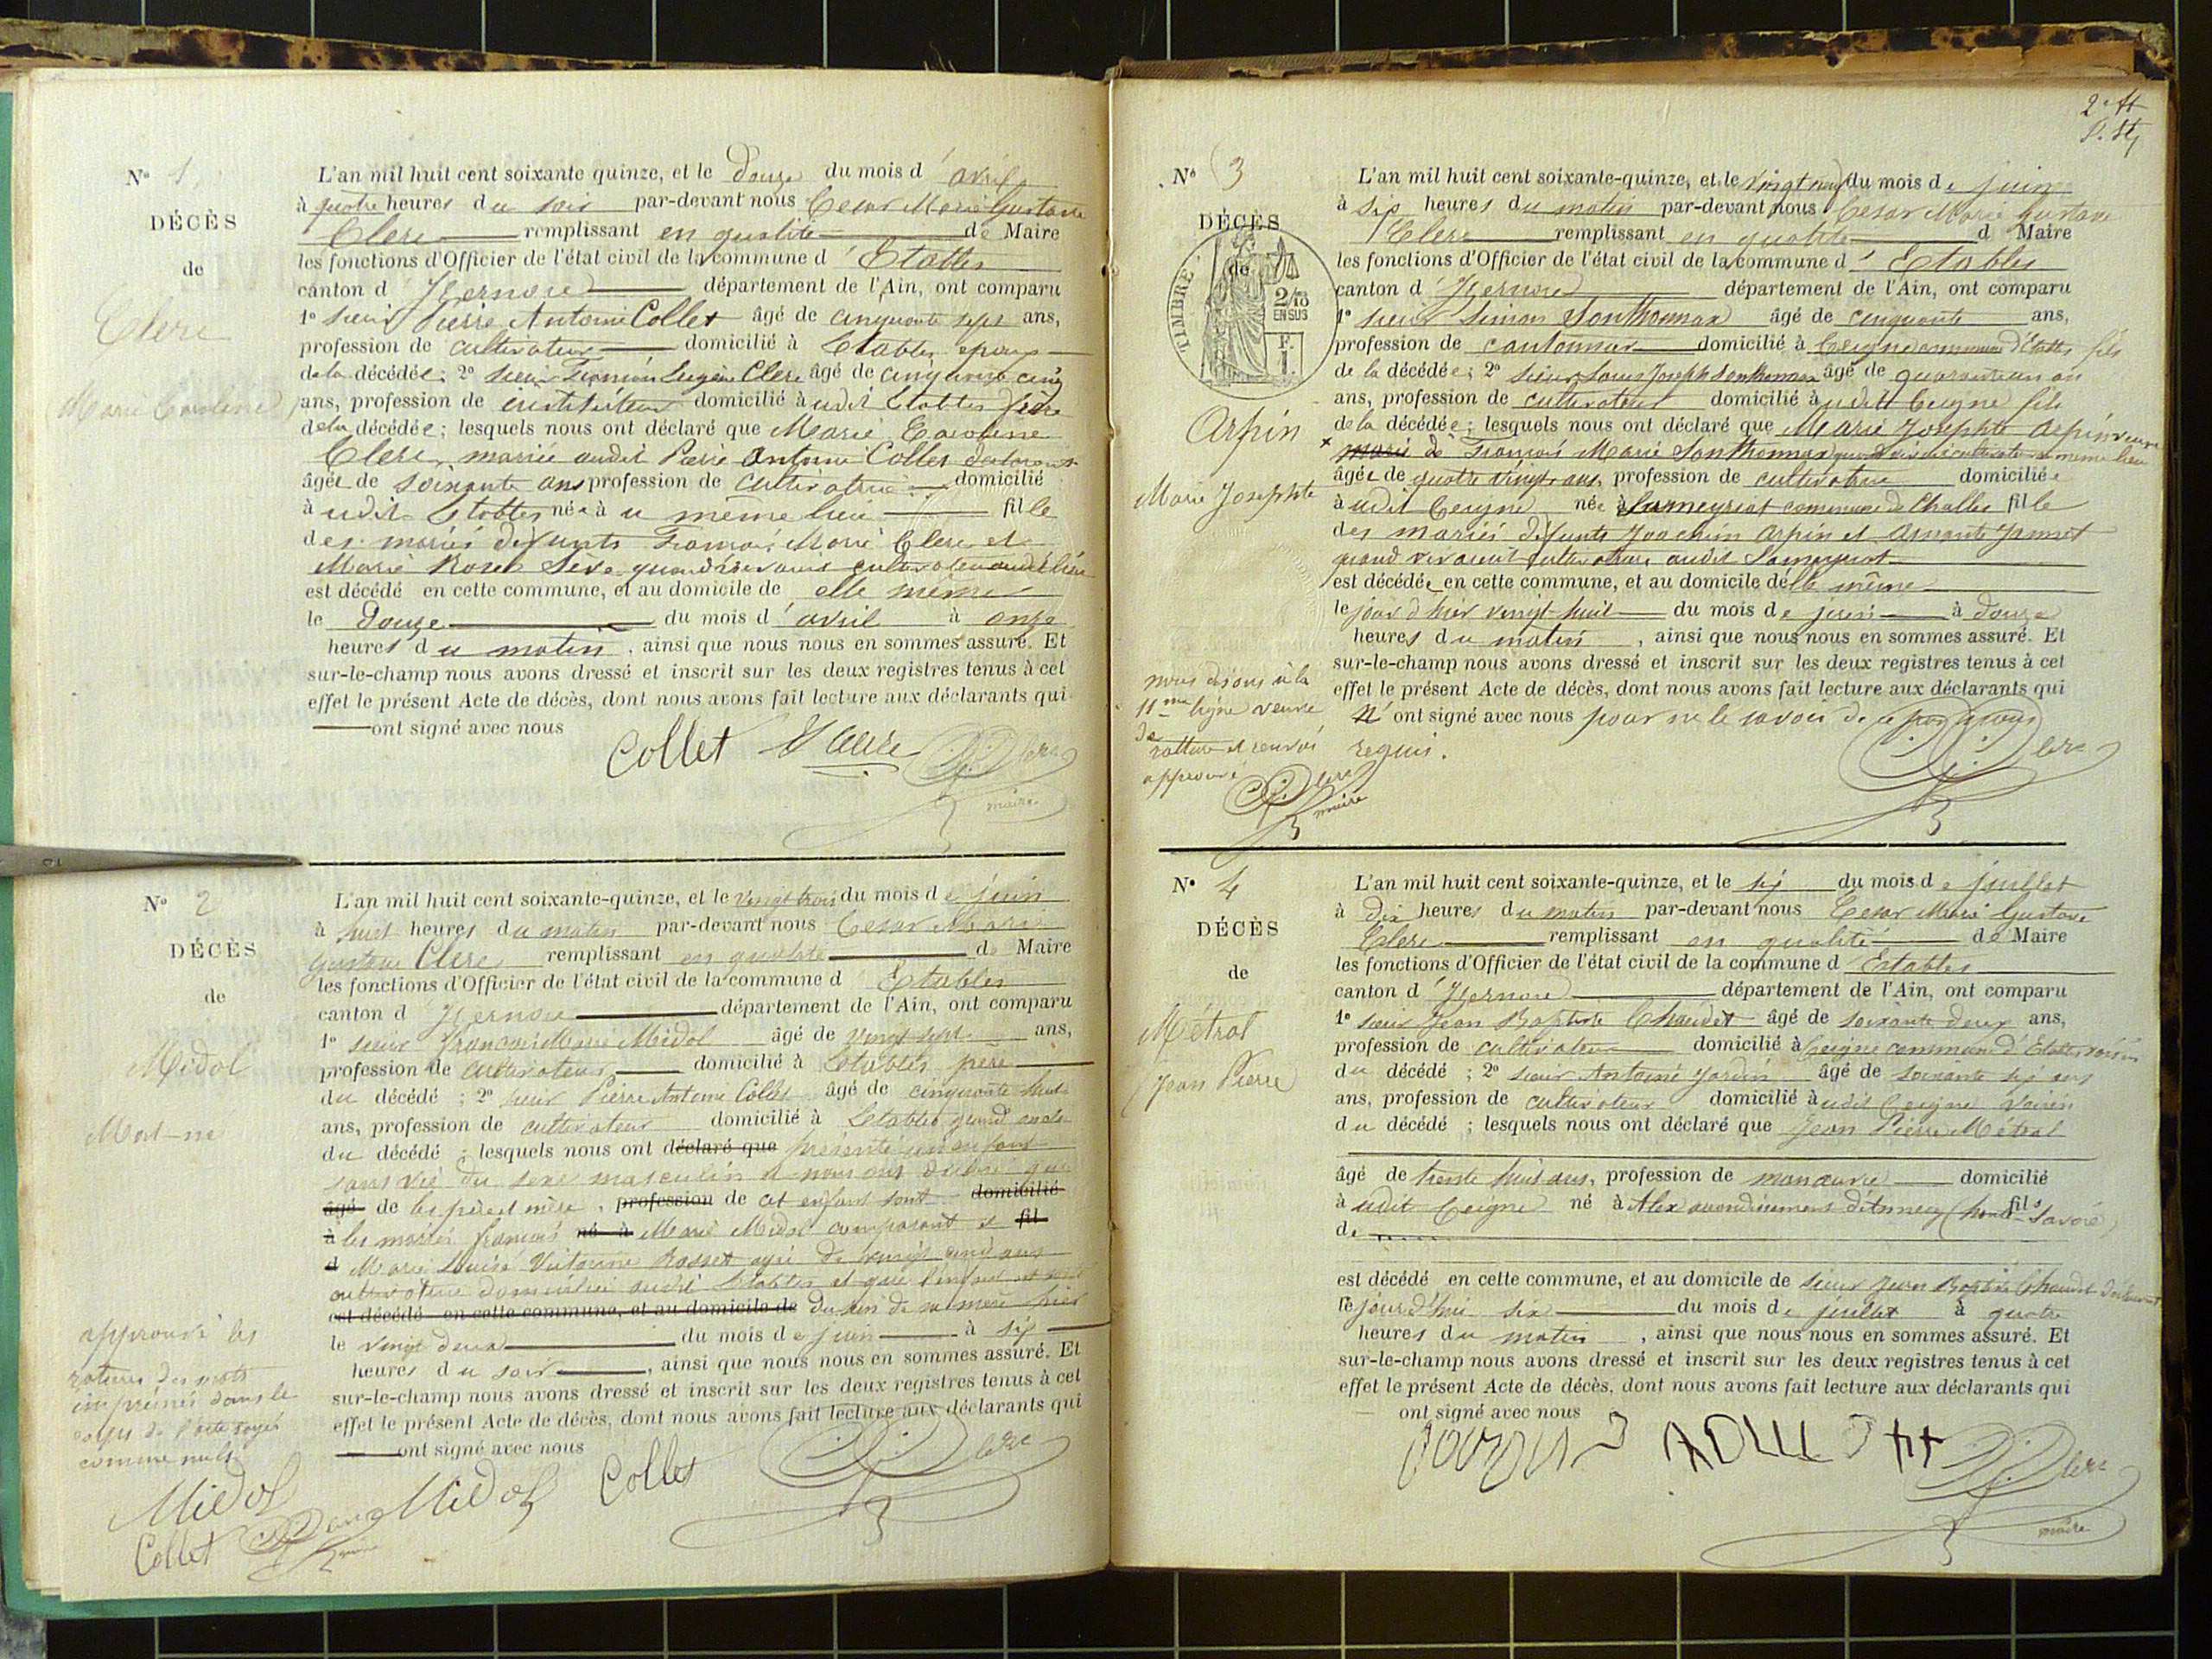 N° 1.
DÉCÈS
de
Clerc
Marie Caroline
L'an mil huit cent soixante quinze, et le douze du mois d'avril
à quatre heures du soir par-devant nous Cesar Marie Gustave
Clerc remplissant en qualité de Maire
les fonctions d'Officier de l'état civil de la commune d'Etables
canton d'Izernore département de l'Ain, ont comparu
1° sieur Pierre Antoine Collet âgé de cinquante sept ans,
profession de cultivateur domicilié à Etables epoux
de la décédée; 2° sieur Eugène Clerc âgé de cinquante cinq
ans, profession de instituteur domicilié à udit Etables frère
de la décédée; lesquels nous ont déclaré que Marie Caroline
Clerc, mariée audit Pierre Antoine Collet
âgée de soixante ans profession de cultivatrice domicilié
à udit Etables née à u même lieu fille
des mariés défunts François Marie Clerc et
Marie Rose quand vivaient cultivateurs audit lieu
est décédé en cette commune, et au domicile de elle même
le douze du mois d'avril à onze
heures du matin, ainsi que nous nous en sommes assuré. Et
sur-le-champ nous avons dressé et inscrit sur les deux registres tenus à cet
effet le présent Acte de décès, dont nous avons fait lecture aux déclarants qui
ont signé avec nous
Collet Clerc
maire
N° 2
DÉCÈS
de
Midol
Mort-né
L'an mil huit cent soixante-quinze, et le vingt trois du mois de juin
à huit heures du matin par-devant nous Cesar Marie
Gustave Clerc remplissant en qualité de Maire
les fonctions d'Officier de l'état civil de la commune d Etables
canton d'Izernore département de l'Ain, ont comparu
1° sieur François Marie Midol âgé de vingt sept ans,
profession de cultivateur domicilié à Etables père
du décédé; 2° sieur Pierre Antoine Collet âgé de cinquante huit
ans, profession de cultivateur domicilié à Etables grand oncle
du décédé; lesquels nous ont déclaré que présenté un enfant
sans vie du sexe masculin et nous ont déclaré que
âgé de les père et mère, profession de cet enfant sont domicilié
à les mariés françois né à Marie Midol comparant et fil
d Marie Louise Victorine Rosset agée de vingt cinq ans
cultivatrice domiciliée audit Etables et que l'enfant est sorti
est décédé en cette commune, et au domicile de du sein de sa mère hier
le vingt deux du mois de juin à six
heures du soir, ainsi que nous nous en sommes assuré. Et
sur-le-champ nous avons dressé et inscrit sur les deux registres tenus à cet
effet le présent Acte de décès, dont nous avons fait lecture aux déclarants qui
ont signé avec nous
approuvé les
ratures des mots
imprimés dans le
corps de l'acte rayés
comme nuls
Midol Midol Collet Clerc
Collet
2e ft
N° 3
DÉCÈS
de
TIMBRE
2/10
EN SUS
F.
1.
Arpin
Marie Josephte
L'an mil huit cent soixante-quinze, et le vingt neuf du mois de juin
à six heures du matin par-devant nous Cesar Marie Gustave
Clerc remplissant en qualité d Maire
les fonctions d'Officier de l'état civil de la commune d'Etables
canton d'Izernore département de l'Ain, ont comparu
1° sieur Simon Sonthonnax âgé de cinquante ans,
profession de cantonnier domicilié à Ceigne commune d'Etables fils
de la décédée; 2° sieur Louis Joseph Sonthonnax âgé de quarante un an
ans, profession de cultivateur domicilié à udit Ceigne fils
de la décédée; lesquels nous ont déclaré que Marie Josephte Arpin veuve
× marié de François Marie Sonthonnax quand vivait cultivateur au même lieu
âgée de quatre vingt ans, profession de cultivatrice domiciliée
à udit Ceigne née à Lameyriat commune de Challes fille
des mariés défunts Joachim Arpin et
quand vivaient cultivateurs audit Lameyriat
est décédée en cette commune, et au domicile de lle même
le jour d'hier vingt huit du mois de juin à douze
heures du matin, ainsi que nous nous en sommes assuré. Et
sur-le-champ nous avons dressé et inscrit sur les deux registres tenus à cet
effet le présent Acte de décès, dont nous avons fait lecture aux déclarants qui
n'ont signé avec nous pour ne le savoir de ce
requis.
nous disons à la
11me ligne veuve
de
rature et renvoi
approuvé
Clerc
maire
Clerc
N° 4
DÉCÈS
de
Métral
Jean Pierre
L'an mil huit cent soixante-quinze, et le six du mois de juillet
à dix heures du matin par-devant nous Cesar Marie Gustave
Clerc remplissant en qualité de Maire
les fonctions d'Officier de l'état civil de la commune d Estables
canton d'Izernore département de l'Ain, ont comparu
1° sieur Jean Baptiste Chaudet âgé de soixante deux ans,
profession de cultivateur domicilié à Ceigne commune d'Etables voisin
du décédé; 2° sieur Antoine Jardin âgé de soixante six ans
ans, profession de cultivateur domicilié à udit Ceigne voisin
du décédé; lesquels nous ont déclaré que Jean Pierre Métral
âgé de trente huit ans, profession de manoeuvre domicilié
à udit Ceigne né à Alex arrondissement d'Annecy (haute Savoie) fils
de
est décédé en cette commune, et au domicile de sieur Jean Baptiste Chaudet déclarant
le jour d'hui six du mois de juillet à quatre
heures du matin, ainsi que nous nous en sommes assuré. Et
sur-le-champ nous avons dressé et inscrit sur les deux registres tenus à cet
effet le présent Acte de décès, dont nous avons fait lecture aux déclarants qui
ont signé avec nous
Clerc
maire